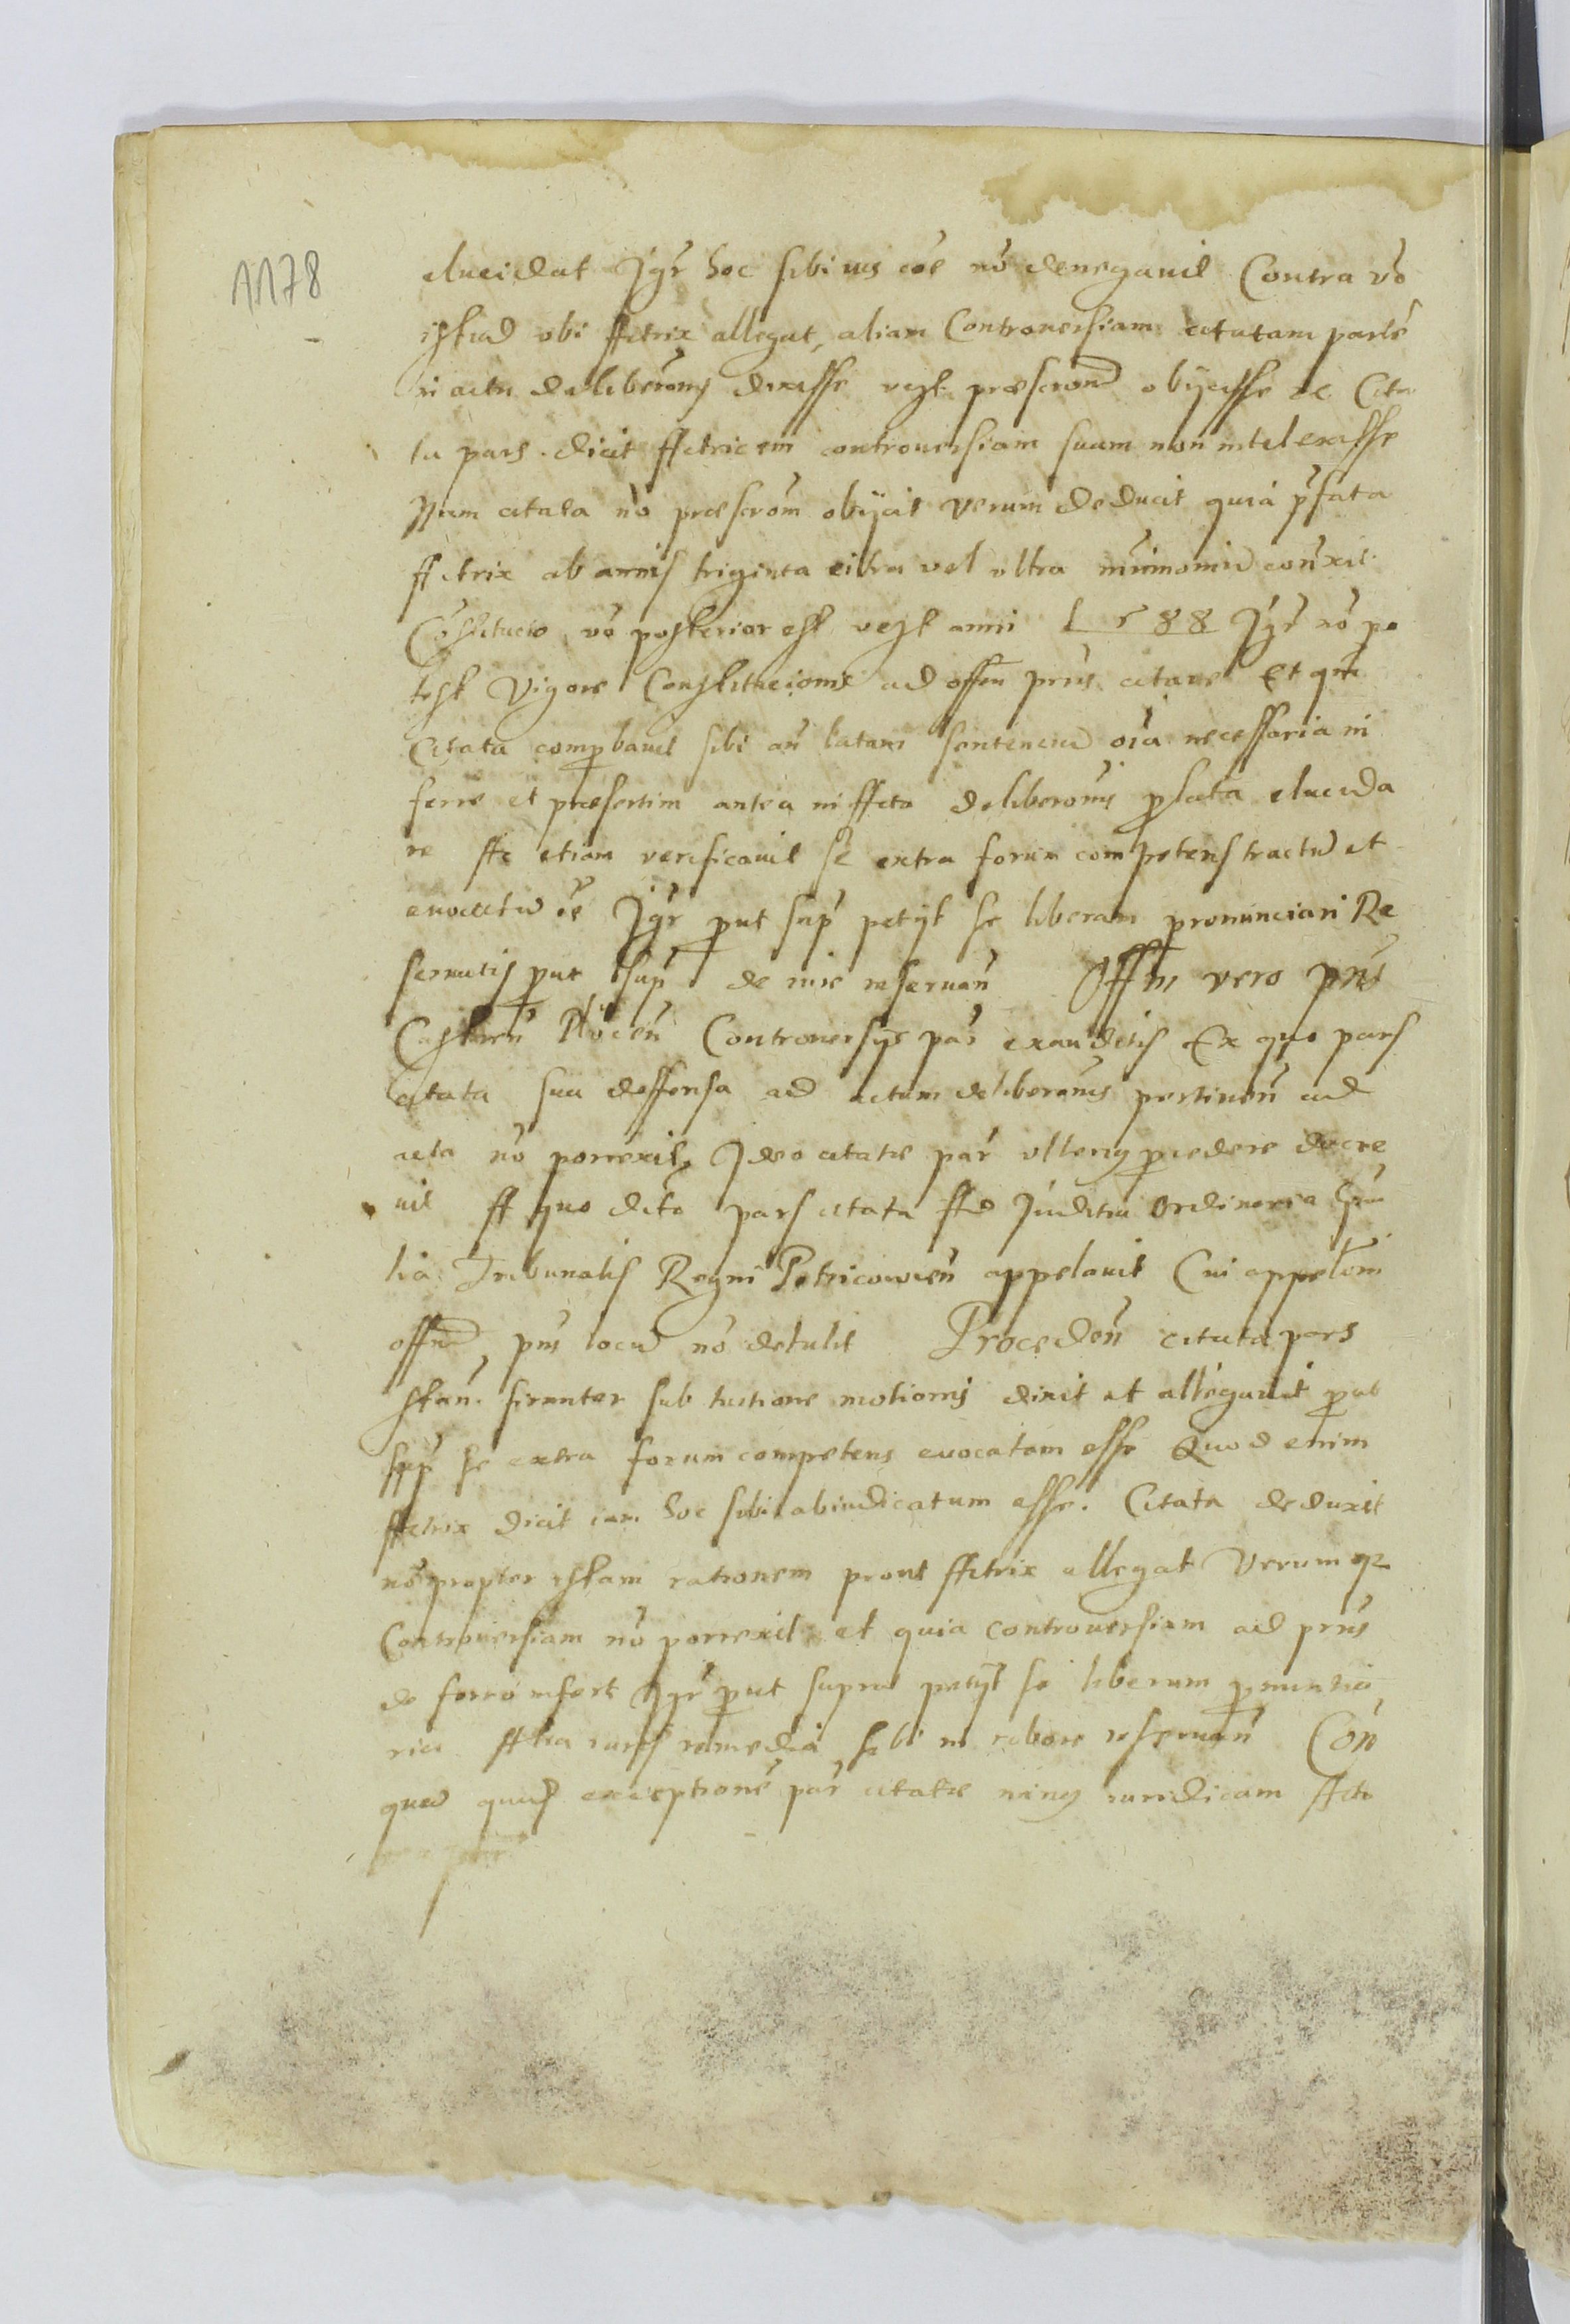 1178
elucidat Jgr̃ hoc sibi ius cõe nõ denegauit Contra võ
istud vbi Actrix allegat, aliam Controuersiam citatam partẽ
in actu deliberãnis dixisse vczt præscrõnẽ obijcisse etc Cita
ta pars dicit Actricem controuersiam suam non intelexisse
Nam citata nõ præscrõm obijcit verum deducit quia p̃fata
Actrix ab annis triginta citra vel vltra mr̃imoniũ conr̃xit
Cõstitucio võ posterior est vczt anni 1588 Jgr̃ nõ po
test Vigore Constitucionis ad offm pñs citare Et qm̃
Citata comp̱bauit sibi an̄ latam sentenciã oĩa necessaria in
ferre et præsertim antea in Acto deliberõnis p̱lata elucida
re Ac etiam verificauit se extra forum competens tractũ et
euocatũ ẽe Jgr̃ p̱ut sup̃ petijt se liberam pronunciari Re
seruatis p̱ut sup̃ de iure reseruañ Offm vero pñs
Castreñ Ploceñ Controuersijs par̃ exauditis Ex quo pars
citata sua deffensa ad actum deliberãnis pertineñ ad
acta nõ porrexit, Jdeo citatæ par̃ vlterius p̱cedere decre
uit A quo dcto pars citata Ad Juditia Ordinaria Gñã
lia Tribunalis Regni Petricowieñ appelauit Cui appelõni
offm̃ pñs locũ nõ detulit Procedeñ citata pars
stañ firmiter sub lusione motionis dixit et allegauit p̱ut
sup̃ se extra forum competens euocatam esse Quod enim
Actrix dicit iam hoc sibi abiudicatum esse. Citata deduxit
nõ propter istam rationem prout Actrix allegat Verum qz
Controuersiam nõ porrexit et quia controuersiam ad pñs
de forro infert Jgr̃ p̱ut supra petijt se liberam p̱nuncia
ria Alia iuris remedia sibi in robore reseruañ Con
quã quid exceptionẽ par̃ citatæ minus iuridicam Acto